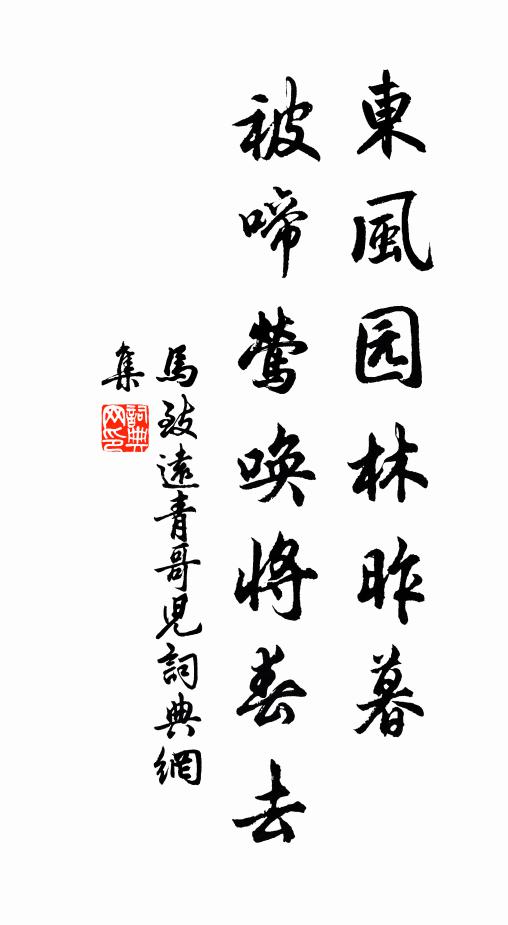 東風园林昨暮
被啼鶯唤將春去
馬致遠青哥児詞典網
集
詞典
网印